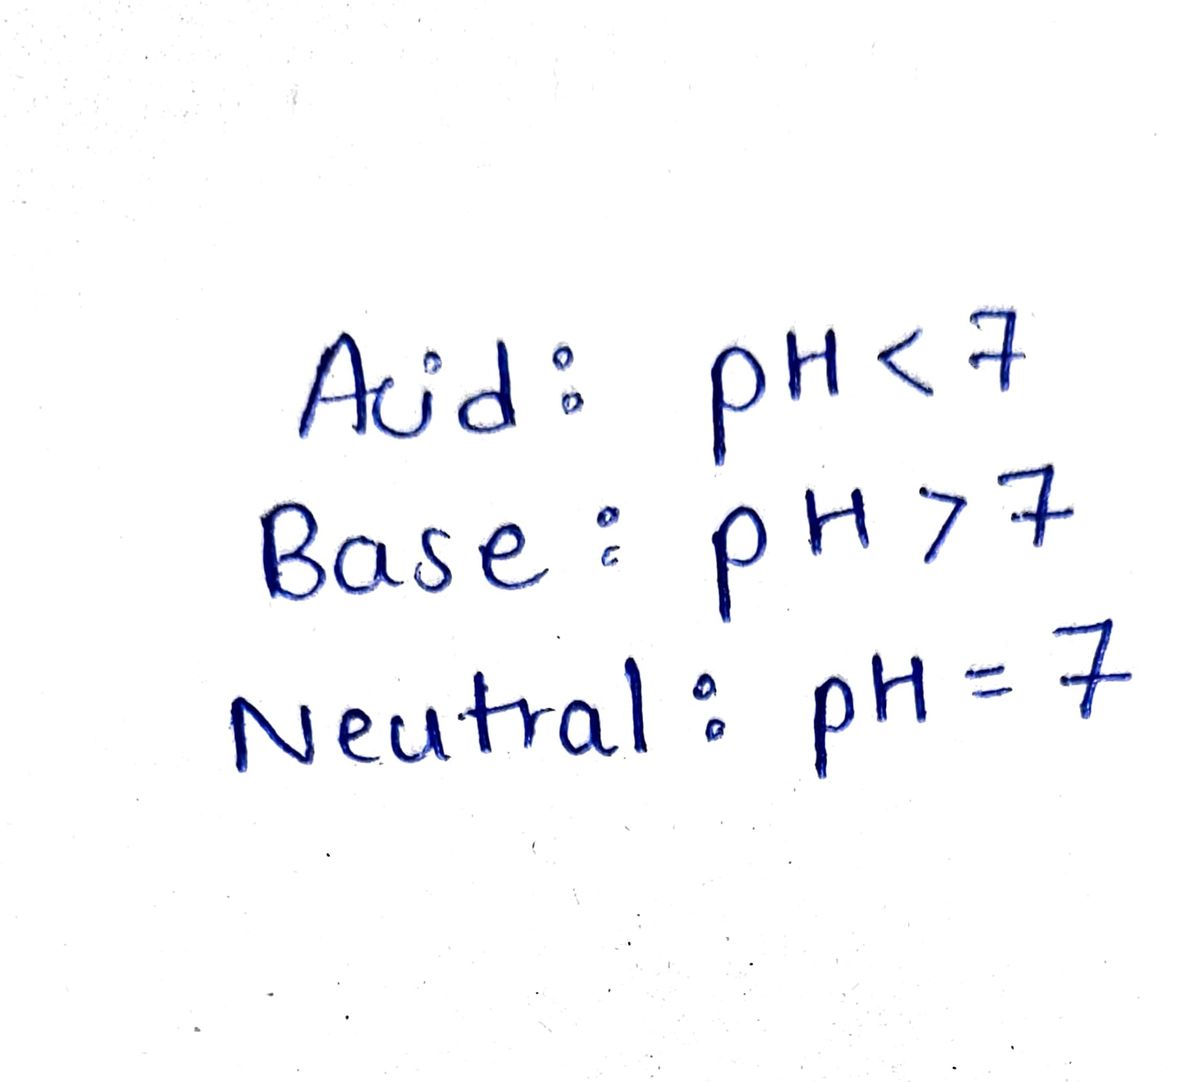 Acid: pH < 7
Base: pH > 7
Neutral: pH = 7